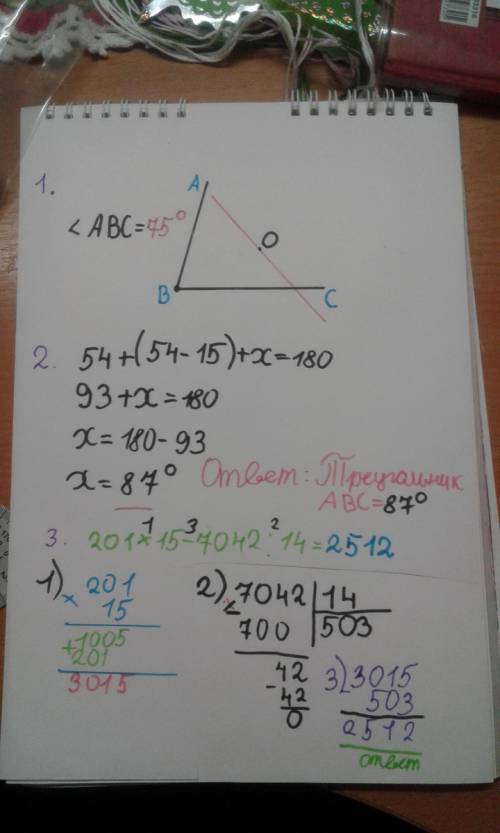 1.
A
∠ABC=75°
O
B
C
2. 54+(54-15)+x=180
93+x=180
x=180-93
x=87° Ответ: Треугальник
ABC=87°
1 3 2
3. 201×15-7042:14=2512
1) 201
× 15
+1005
201
3015
2) 7042 14
- 700 503
42
- 42
0
3) 3015
- 503
2512
ответ